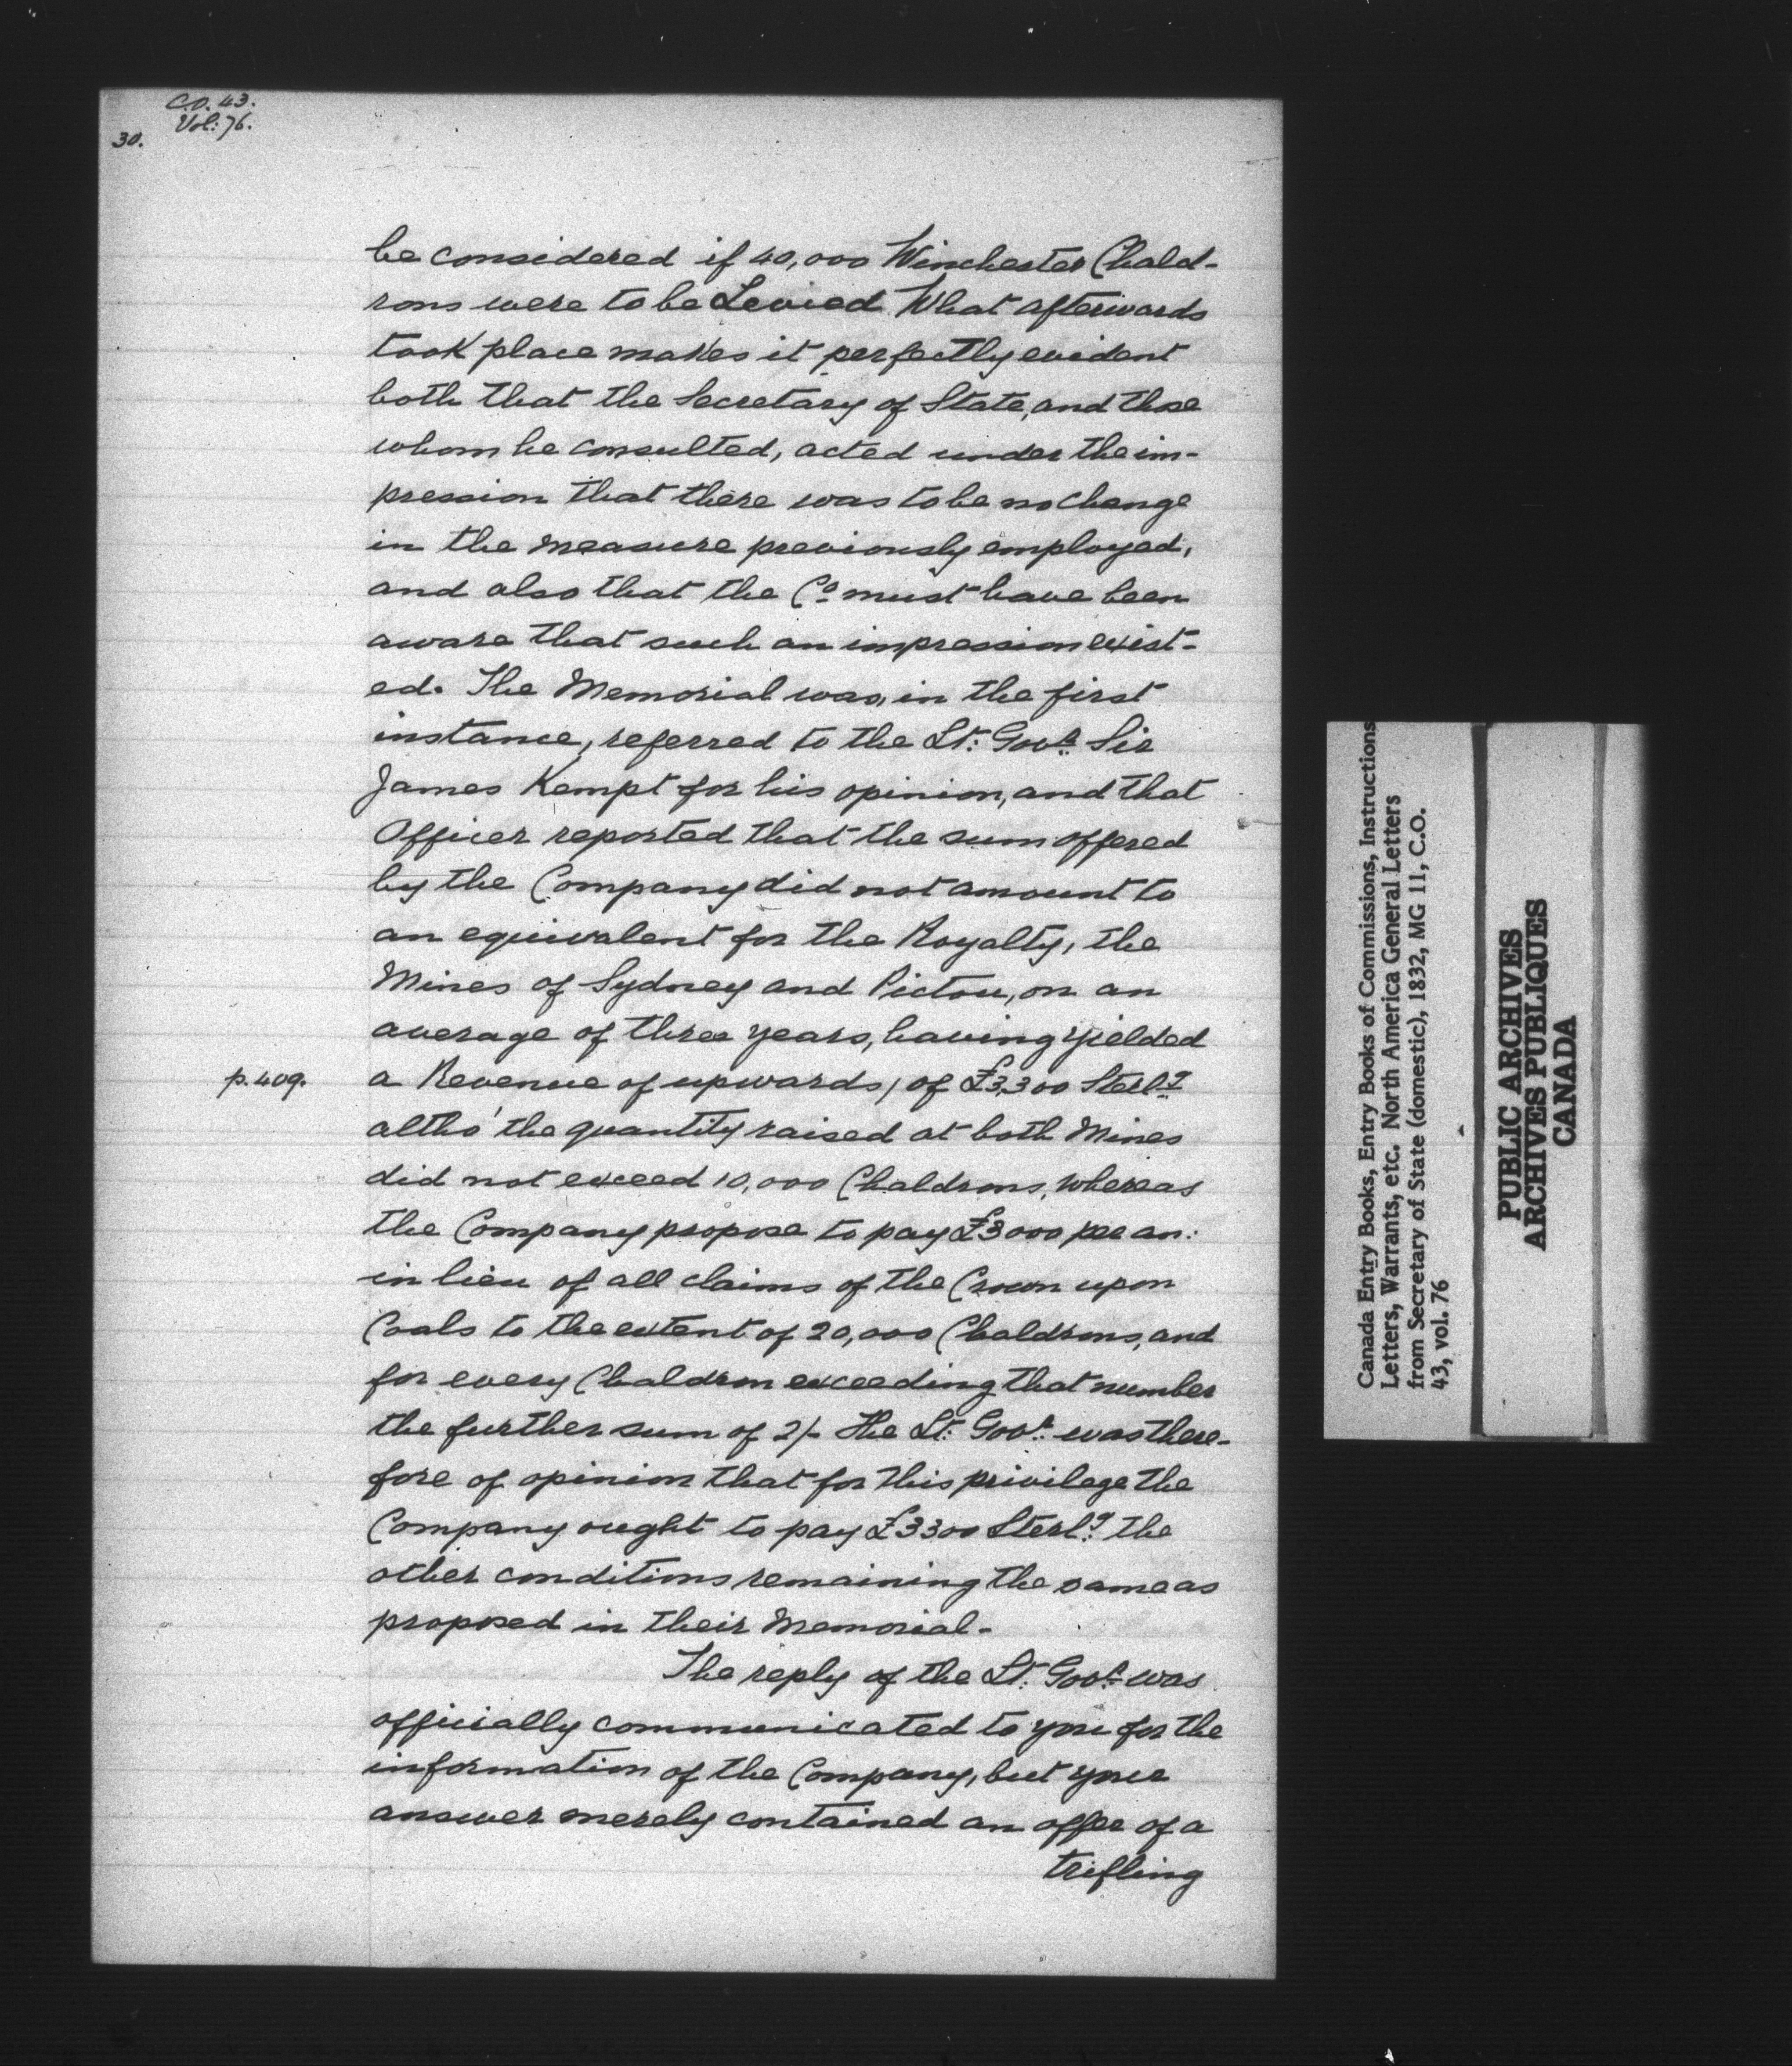 C.O. 43.
Vol: 76.
30.
be considered if 40,000 Winchester Chald-
rons were to be Levied What afterwards
took place makes it perfectly evident
both that the Secretary of State, and those
whom he consulted, acted under the im-
pression that there was to be no change
in the measure previously employed,
and also that the Co must have been
aware that such an impression exist-
ed. The Memorial was, in the first
instance, referred to the Lt: Govr. Sir
James Kempt for his opinion, and that
Officer reported that the sum offered
by the Company did not amount to
an equivalent for the Royalty, the
Mines of Sydney and Pictou, on an
average of three years, having yielded
p. 409.
a Revenue of upwards / of £3,300 Sterlg.
altho' the quantity raised at both Mines
did not exceed 10,000 Chaldrons, whereas
the Company propose to pay £3000 per an:
in lieu of all claims of the Crown upon
Coals to the extent of 20,000 Chaldrons, and
for every Chaldron exceeding that number
the further sum of 2/- The Lt: Govr. was there-
fore of opinion that for this privilege the
Company ought to pay £3300 Sterlg. the
other conditions remaining the same as
proposed in their Memorial -
The reply of the Lt: Govr. was
officially communicated to you for the
information of the Company, but your
answer merely contained an offer of a
trifling
Canada Entry Books, Entry Books of Commissions, Instructions
Letters, Warrants, etc. North America General Letters
from Secretary of State (domestic), 1832, MG 11, C.O.
43, vol. 76
PUBLIC ARCHIVES
ARCHIVES PUBLIQUES
CANADA